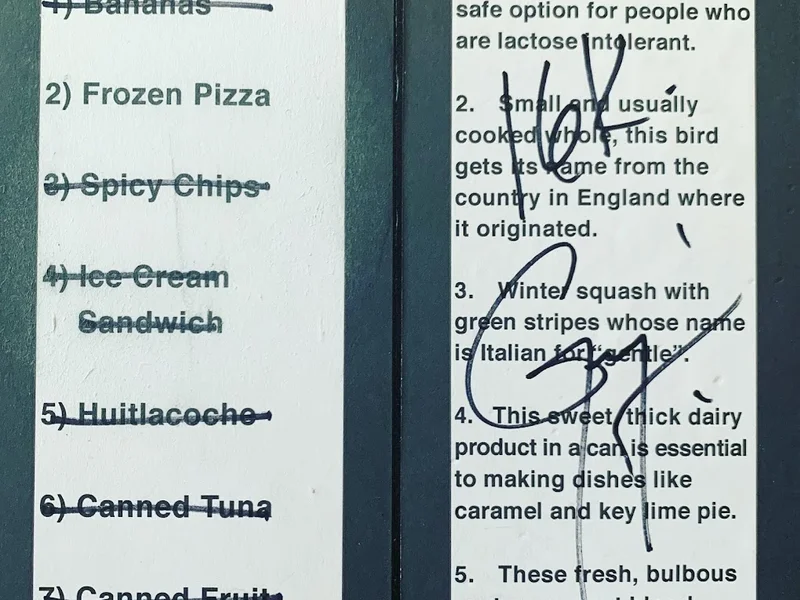 1) Bananas
2) Frozen Pizza
3) Spicy Chips
4) Ice Cream
Sandwich
5) Huitlacoche
6) Canned Tuna
7) Canned Fruit
safe option for people who
are lactose intolerant.
2. Small and usually
cooked whole, this bird
gets its name from the
country in England where
it originated.
3. Winter squash with
green stripes whose name
is Italian for “gentle”.
4. This sweet, thick dairy
product in a can is essential
to making dishes like
caramel and key lime pie.
5. These fresh, bulbous
16K